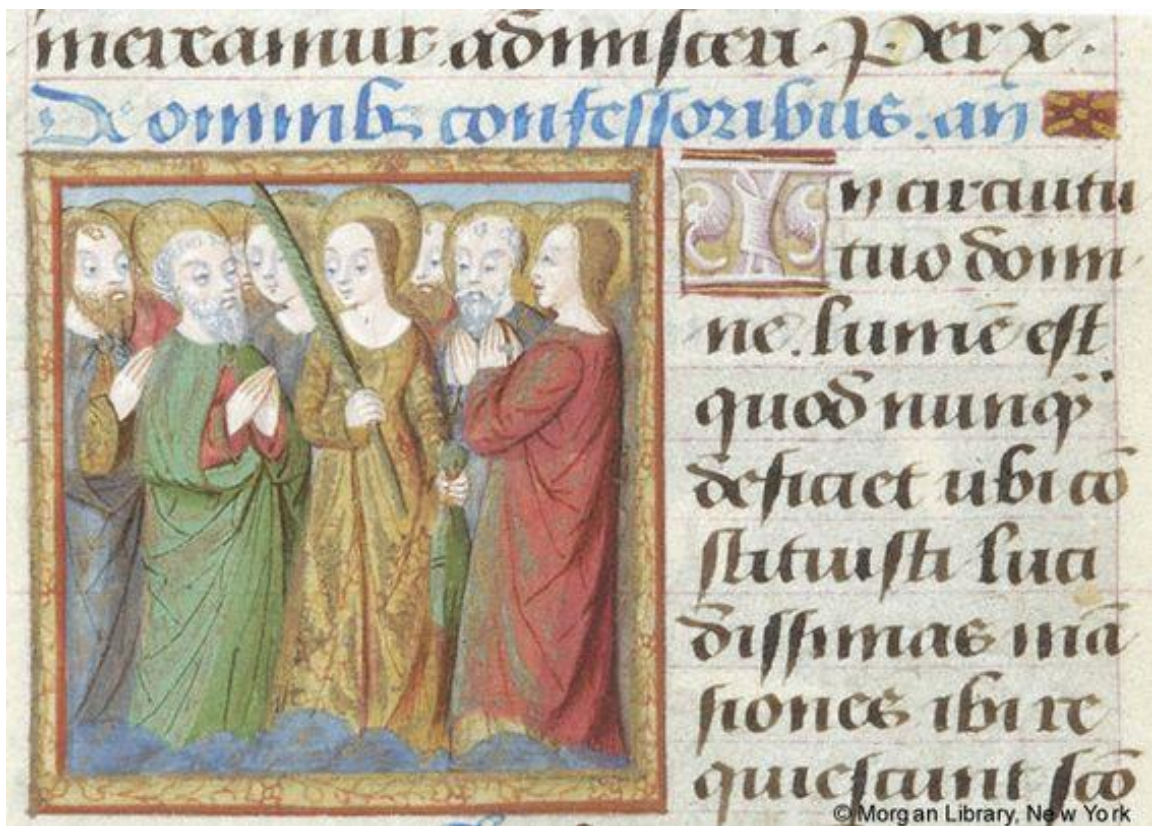 mereamur admisceri. Per x.
De omnibz confessoribus. an̄
In circuitu
tuo domi
ne. lumē est
quod nunq̄
deficiet ubi cō
stituisti luci
dissimas mā
siones ibi re
quiescunt scō
© Morgan Library, New York